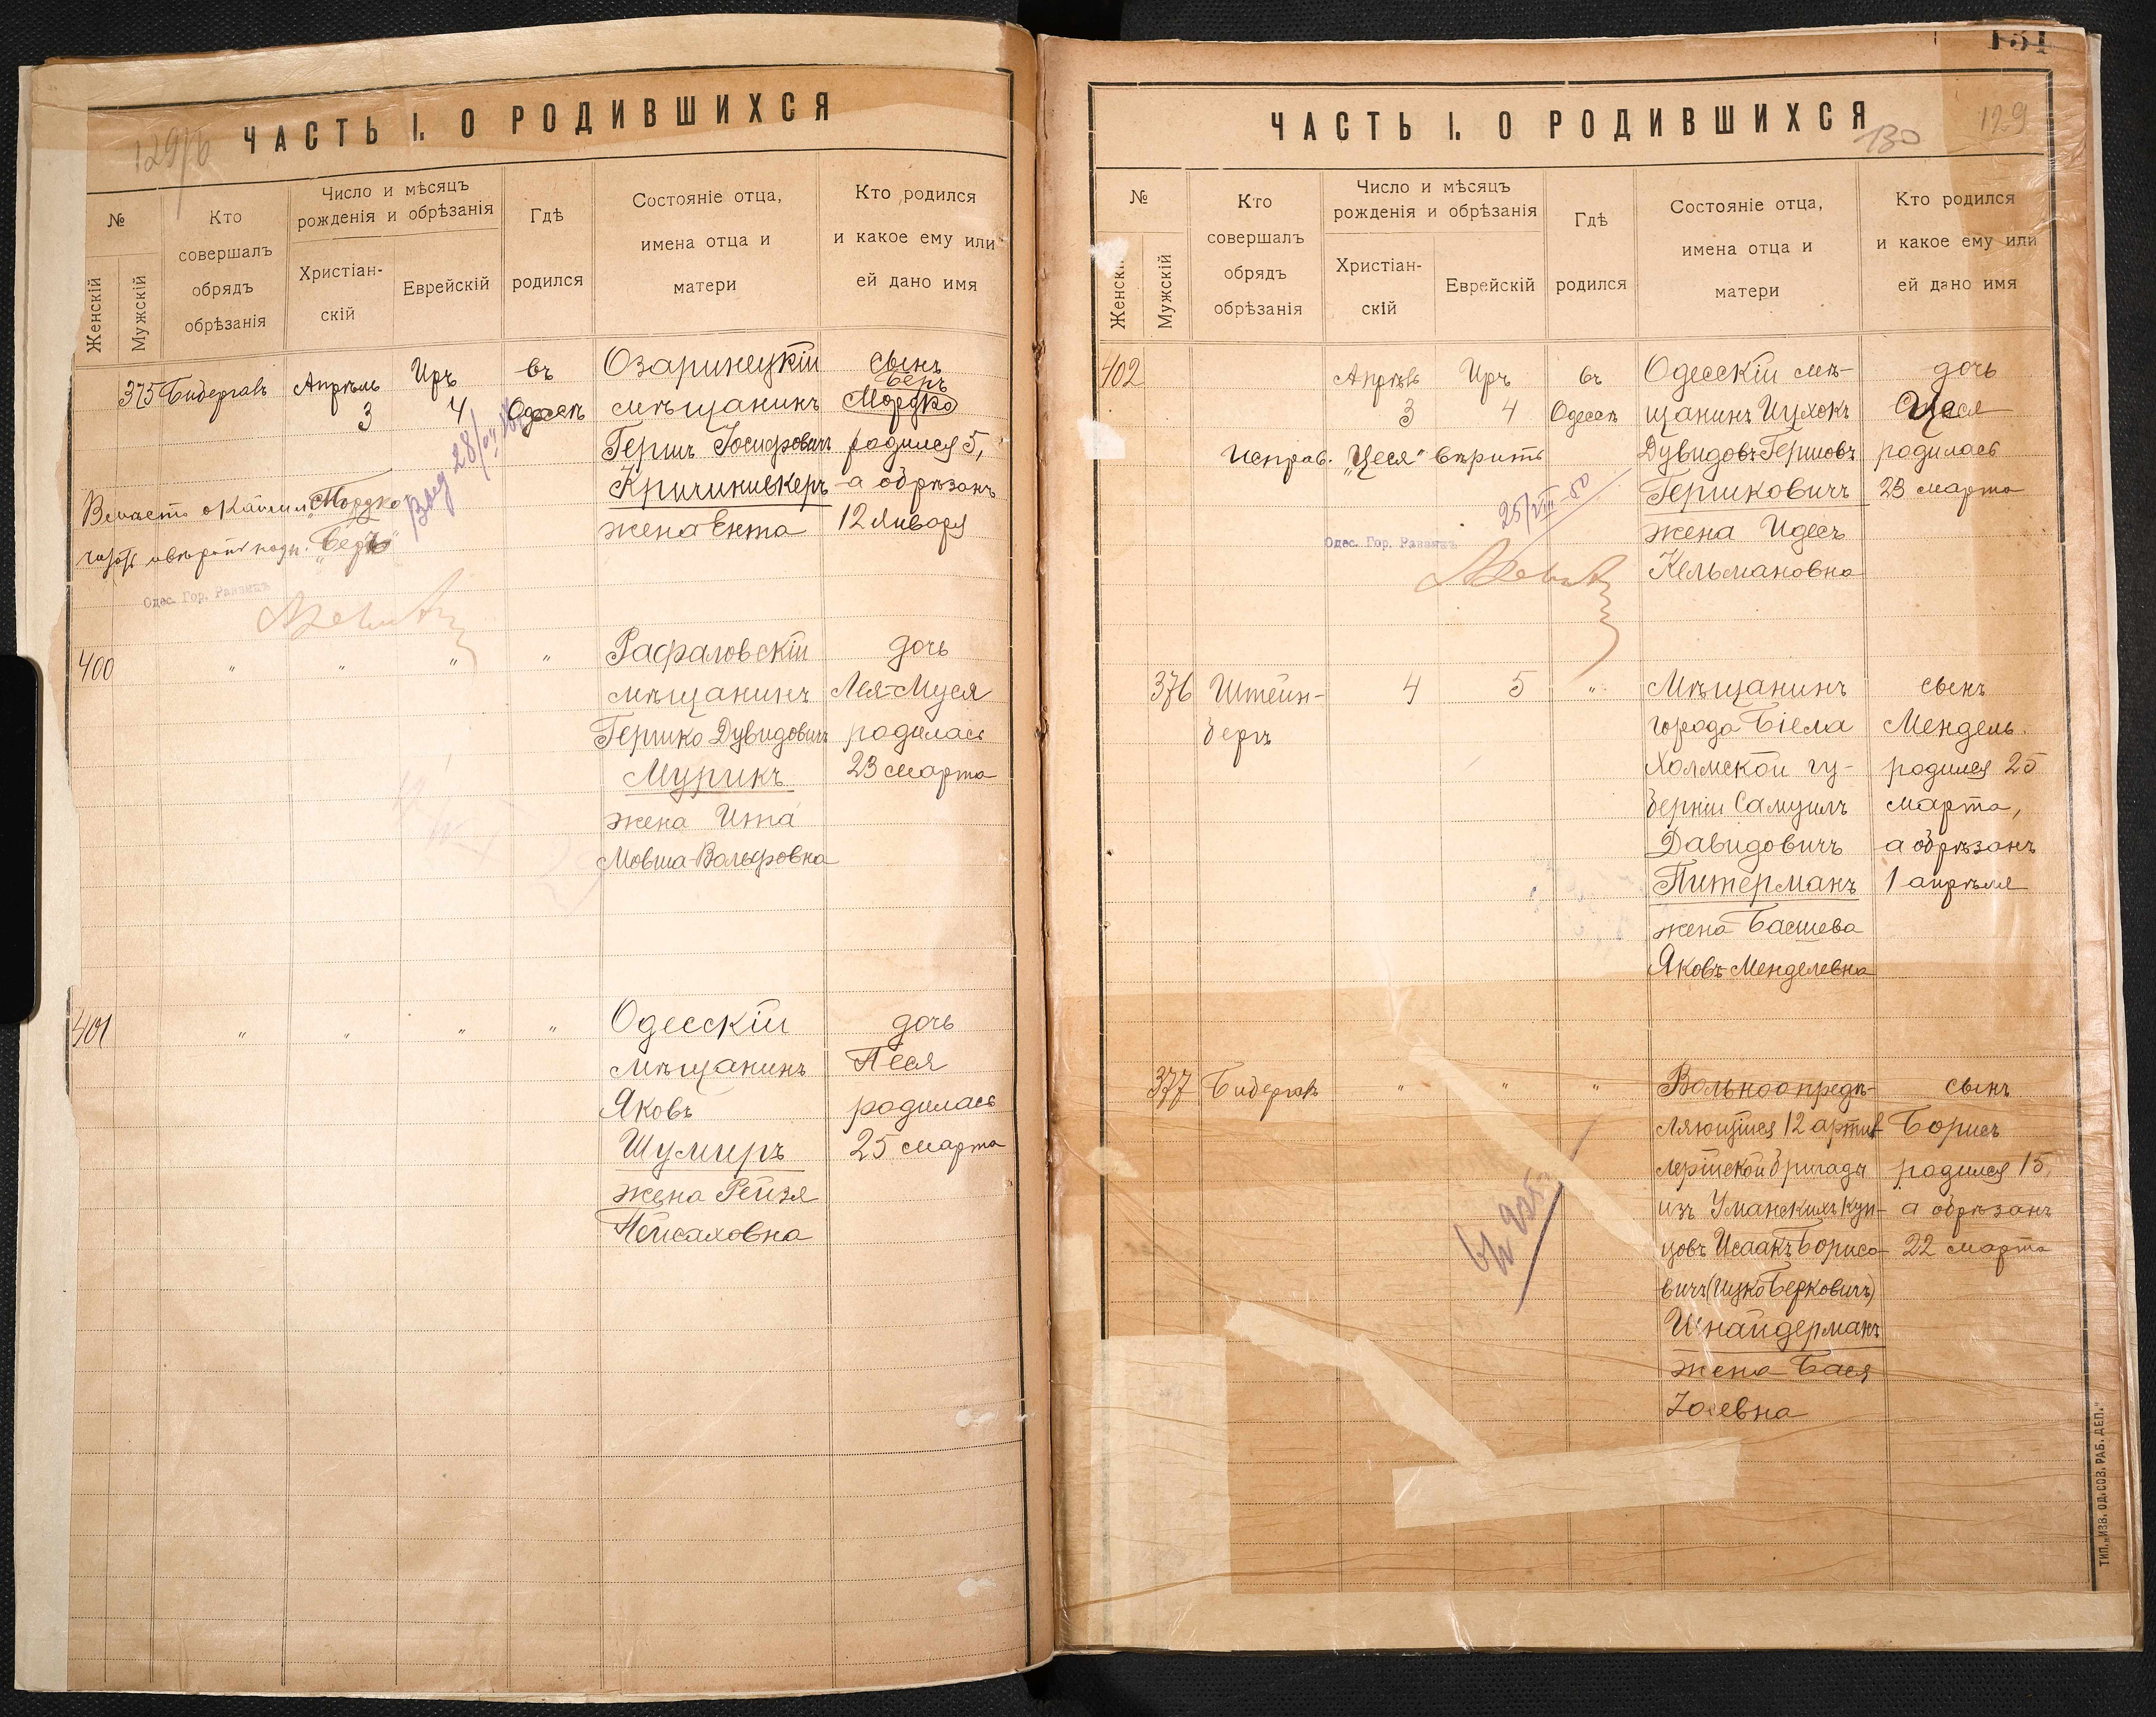 129/б
ЧАСТЬ I. О РОДИВШИХСЯ
№
Женскій
Мужскій
Кто
совершалъ
обрядъ
обрѣзанія
Число и мѣсяцъ
рожденія и обрѣзанія
Христіан-
скій
Еврейскій
Гдѣ
родился
Состояніе отца,
имена отца и
матери
Кто родился
и какое ему или
ей дано имя
375
Бидергалъ
Апрѣль
3
Иръ
4
въ
Одессѣ
Озаринецкій
мѣщанинъ
Гершъ Іосифовичъ
Кричинивкеръ
жена Ента
сынъ
Беръ
Мордко
родился 5,
а обрѣзанъ
12 Января
Мордко
"Беръ"
Одес. Гор. Раввинъ
400
" " " "
Рафаловскій
мѣщанинъ
Гершко Дувидовичъ
Мурикъ
жена Ита
Мовша-Вольфовна
дочь
Лея-Муся
родилась
23 марта
401
" " " "
Одесскій
мѣщанинъ
Яковъ
Шумиръ
жена Рейзя
Пейсаховна
дочь
Песя
родилась
25 марта
131
130
129
ЧАСТЬ I. О РОДИВШИХСЯ
№
Женскій
Мужскій
Кто
совершалъ
обрядъ
обрѣзанія
Число и мѣсяцъ
рожденія и обрѣзанія
Христіан-
скій
Еврейскій
Гдѣ
родился
Состояніе отца,
имена отца и
матери
Кто родился
и какое ему или
ей дано имя
402
Апрѣль
3
Иръ
4
въ
Одессѣ
Одесскій мѣ-
щанинъ Ицхокъ
Дувидовъ-Гершовъ
Гершковичъ
жена Идесъ
Кельмановна
дочь
Цеся
родилась
23 марта
Исправ. "Цеся" вѣрить
25/VIII-50
Одес. Гор. Раввинъ
376
Штейн-
бергъ
4
5
"
Мѣщанинъ
города Бѣла
Холмской гу-
берніи Самуилъ
Давидовичъ
Питерманъ
жена Басшева
Яковъ-Менделевна
сынъ
Мендель
родился 25
марта,
а обрѣзанъ
1 апрѣля
377
Бидергалъ
" " "
Вольноопредѣ-
ляющійся 12 артил
лерійской бригады
изъ Уманскихъ куп-
цовъ Исаакъ Борисо-
вичъ (Ицко Берковичъ)
Шнайдерманъ
жена Бася
сынъ
Борисъ
родился 15,
а обрѣзанъ
22 марта
ТИП. „ИЗВ. ОД. СОВ. РАБ. ДЕП."